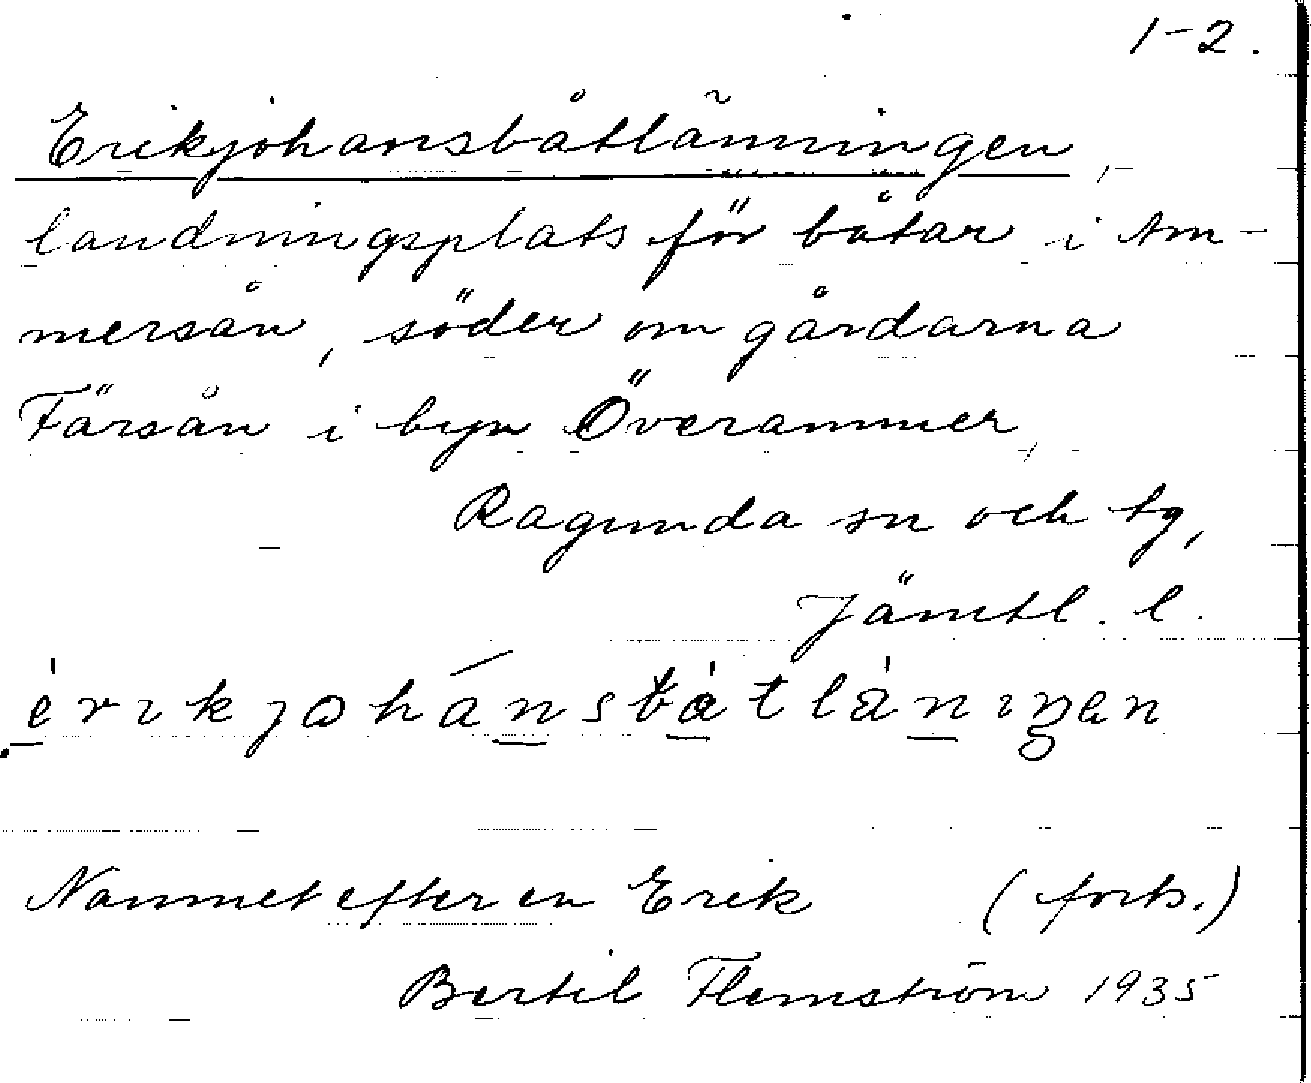 1-2.
Erikjohansbåtlänningen,
landningsplats för båtar i Am-
mersån, söder om gårdarna
Färsån i byn Överammer,
Ragunda sn och tg,
Jämtl. l.
èrıkjohánsbà̀tlä̀nıŋen
Namnet efter en Erik (forts.)
Bertil Flemström 1935